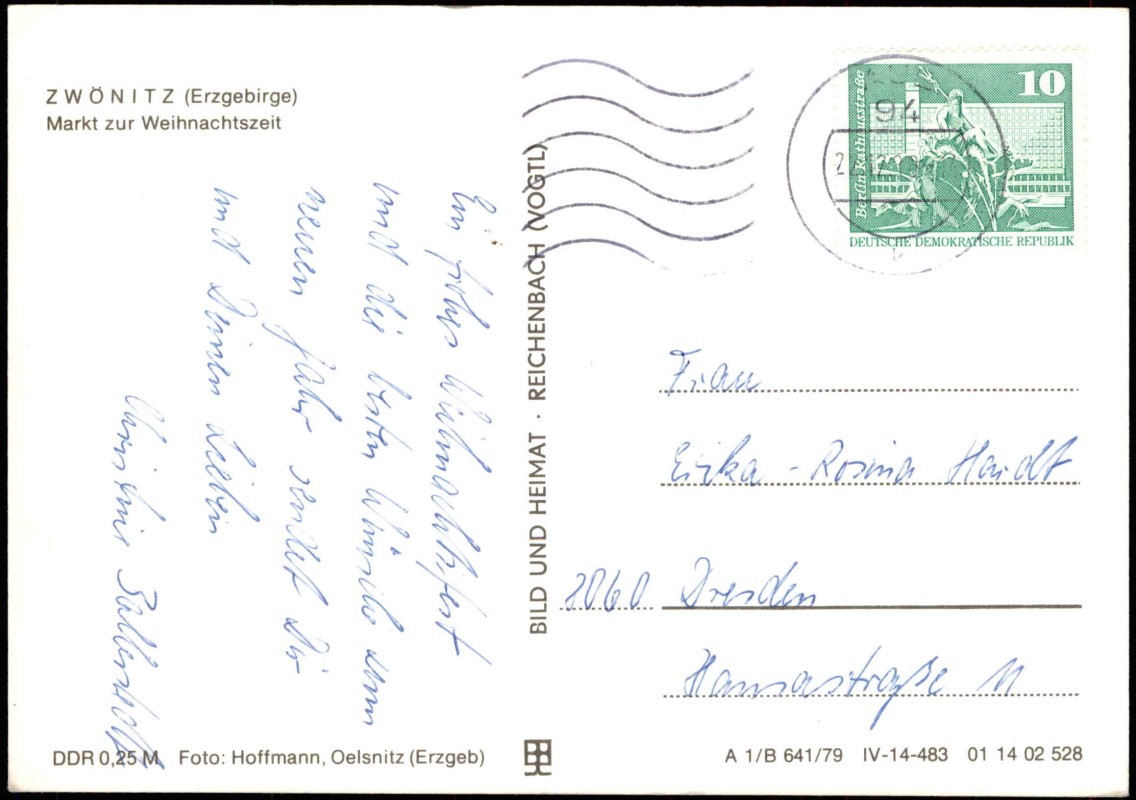 ZWÖNITZ (Erzgebirge)
Markt zur Weihnachtszeit
Ein frohes Weihnachtsfest
und die besten Wünsche zum
neuen Jahr sendet Dir
und Deinen Lieben
Christine
BILD UND HEIMAT · REICHENBACH (VOGTL)
94
10
Berlin, Rathausstraße
DEUTSCHE DEMOKRATISCHE REPUBLIK
Frau
Erika-Rosina Haidt
8060 Dresden
Hansastraße 11
DDR 0,25 M Foto: Hoffmann, Oelsnitz (Erzgeb)
A 1/B 641/79 IV-14-483 01 14 02 528